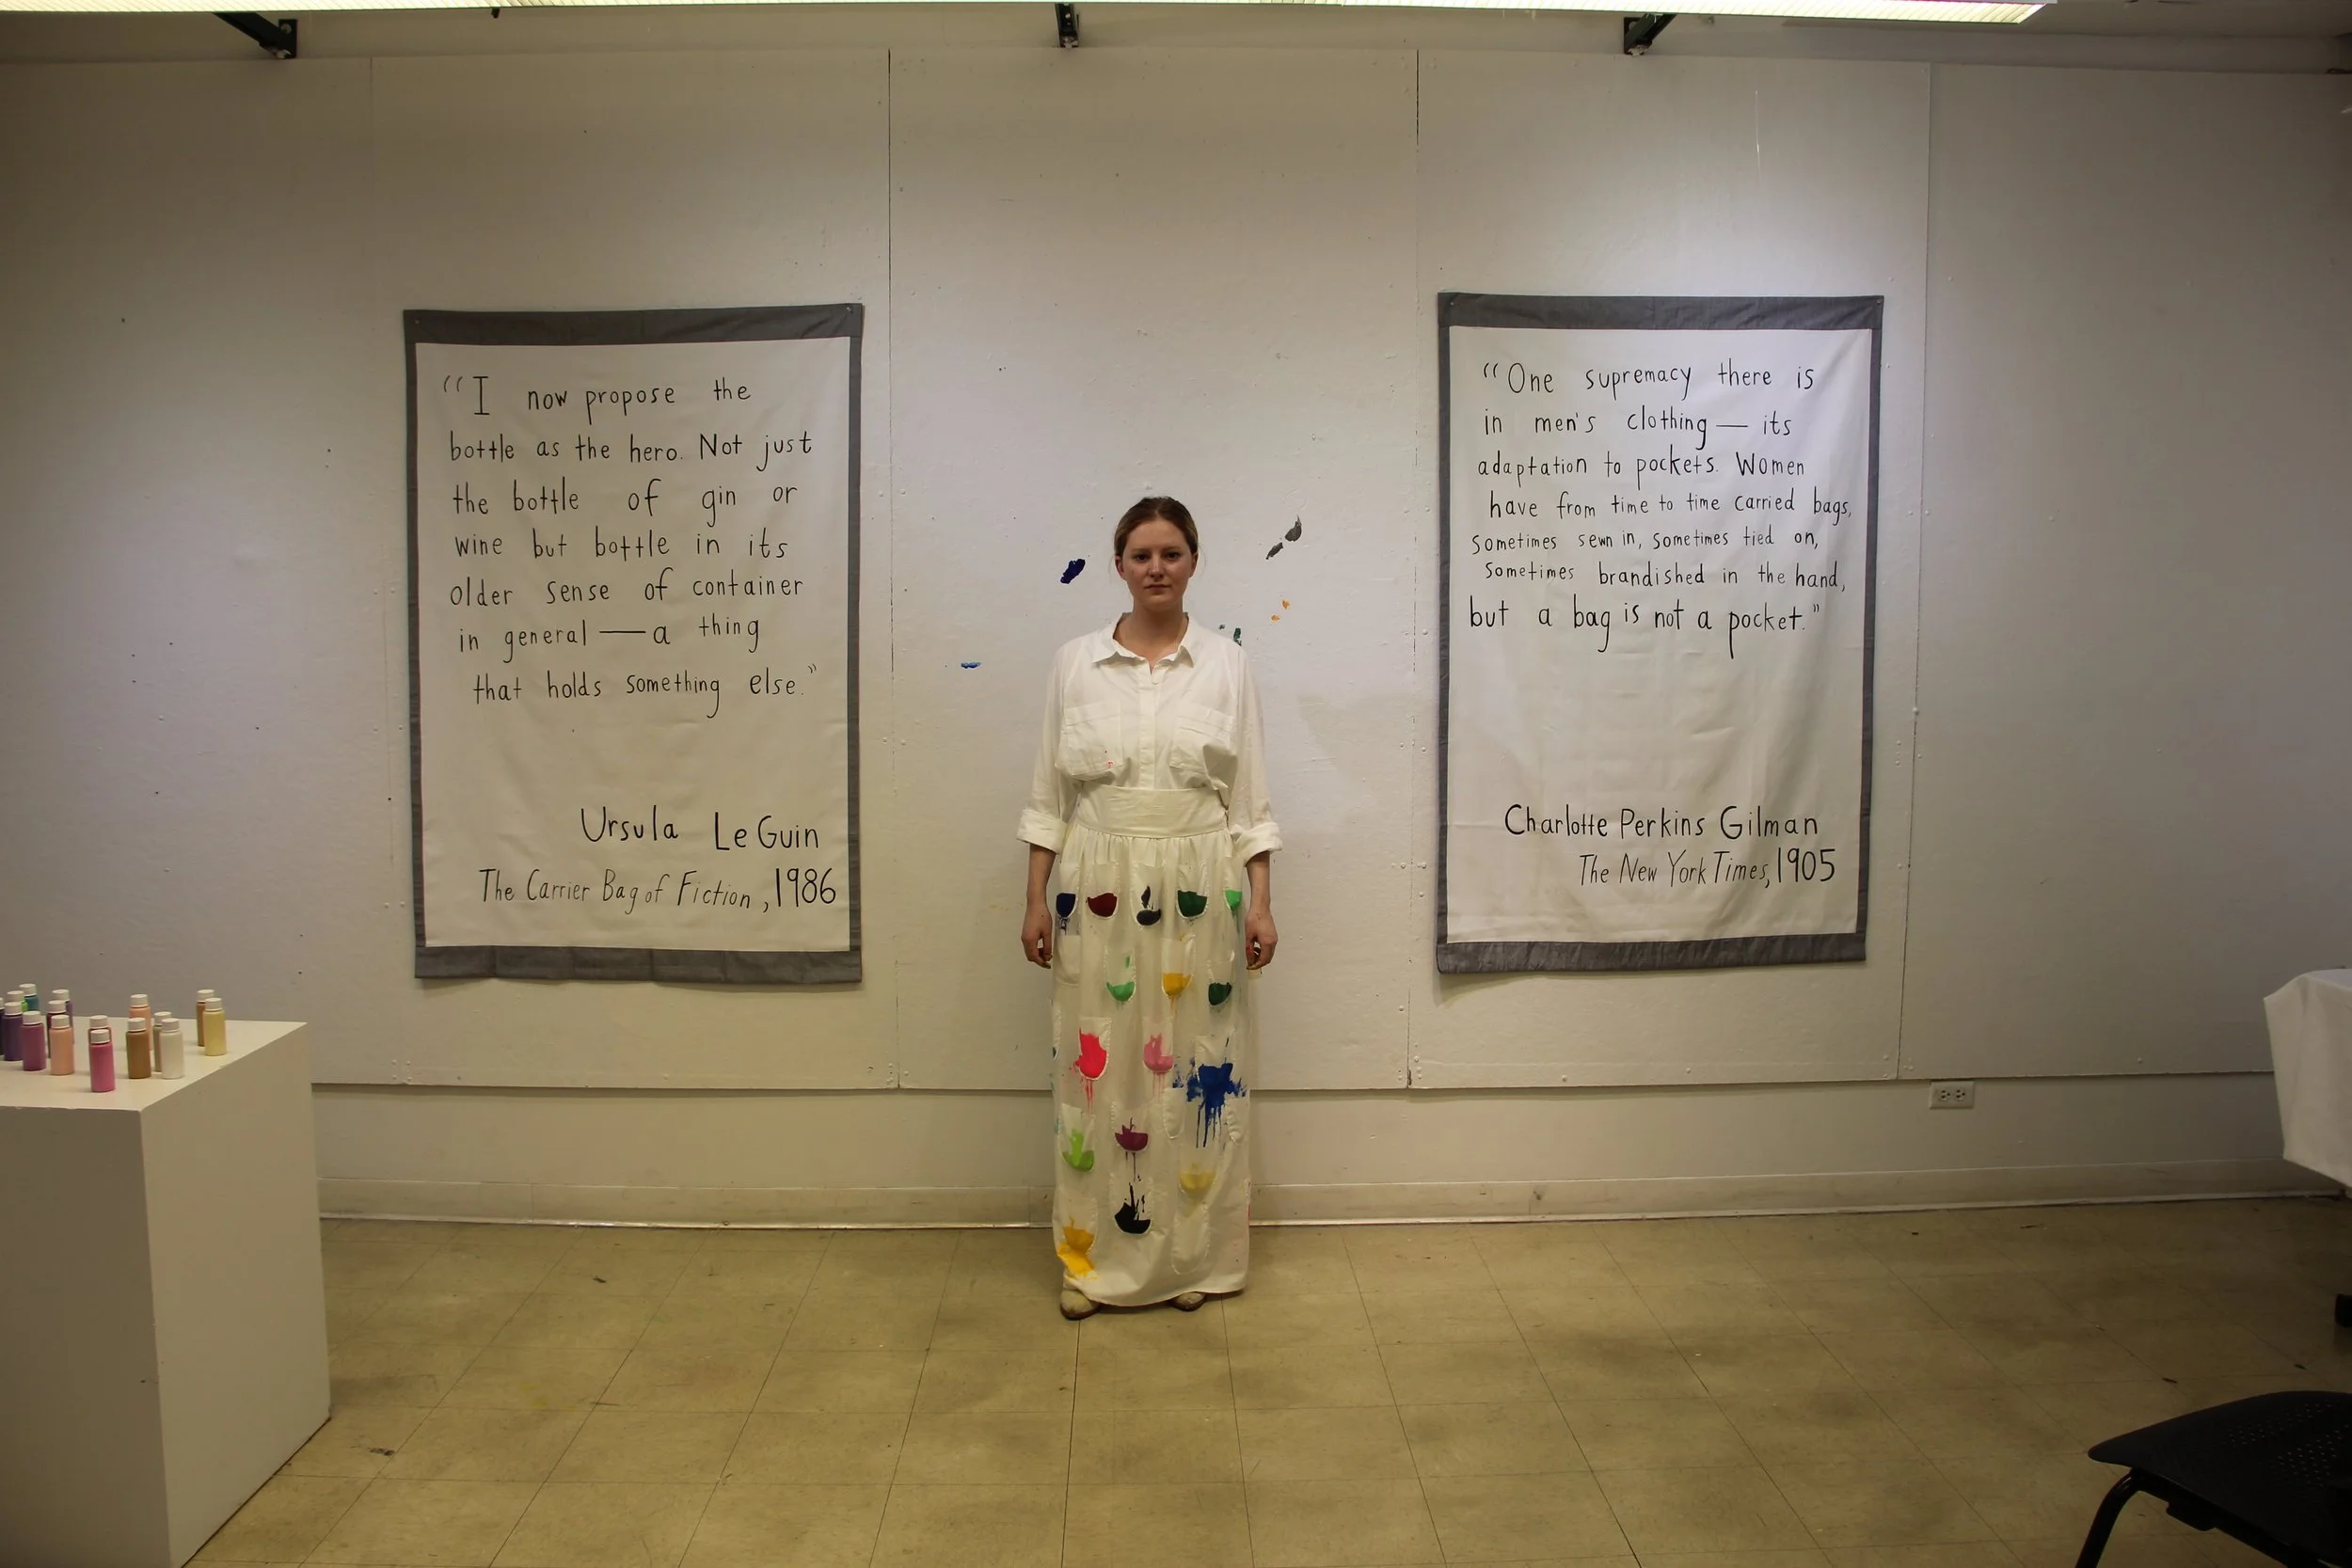 “I now propose the
bottle as the hero. Not just
the bottle of gin or
wine but bottle in its
older sense of container
in general — a thing
that holds something else.”
Ursula Le Guin
The Carrier Bag of Fiction, 1986
“One supremacy there is
in men's clothing — its
adaptation to pockets. Women
have from time to time carried bags,
sometimes sewn in, sometimes tied on,
sometimes brandished in the hand,
but a bag is not a pocket.”
Charlotte Perkins Gilman
The New York Times, 1905